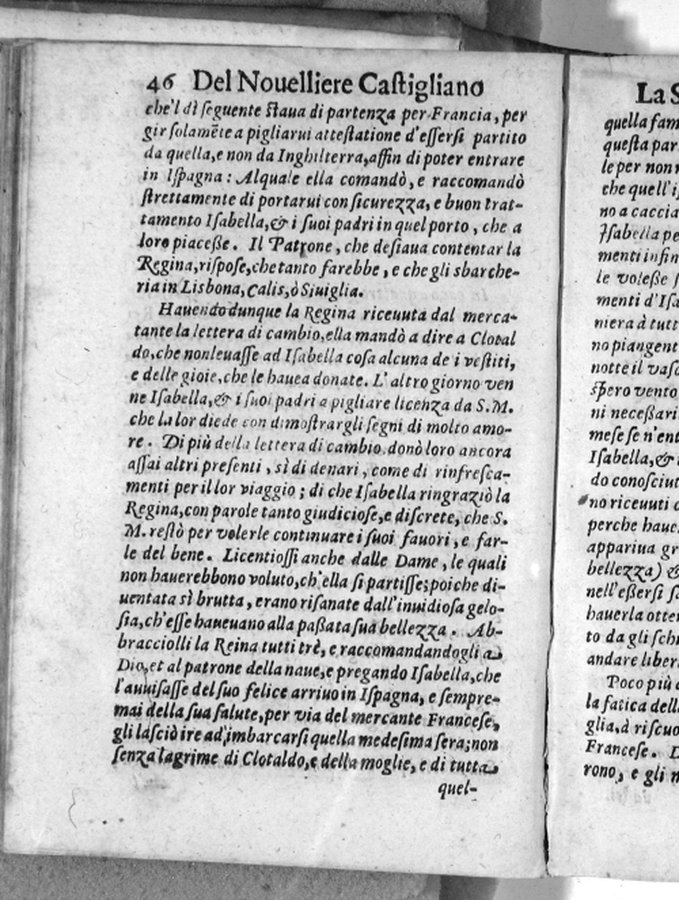 46 Del Nouelliere Castigliano
che'l dì seguente staua di partenza per Francia, per
gir solamẽte a pigliarui attestatione d'essersi partito
da quella, e non da Inghilterra, affin di poter entrare
in Ispagna: Alquale ella comandò, e raccomandò
strettamente di portarui con sicurezza, e buon trat-
tamento Isabella, & i suoi padri in quel porto, che a
loro piacesse. Il Patrone, che desiaua contentar la
Regina, rispose, che tanto farebbe, e che gli sbarche-
ria in Lisbona, Calis, ò Siuiglia.
Hauendo dunque la Regina riceuuta dal merca-
tante la lettera di cambio, ella mandò a dire a Clotal
do, che non leuasse ad Isabella cosa alcuna de i vestiti,
e delle gioie, che le hauea donate. L'altro giorno ven
ne Isabella, & i suoi padri a pigliare licenza da S.M.
che la lor diede con dimostrargli segni di molto amo-
re. Di più della lettera di cambio donò loro ancora
assai altri presenti, sì di denari, come di rinfresca-
menti per il lor viaggio; di che Isabella ringraziò la
Regina, con parole tanto giudiciose, e discrete, che S.
M. restò per volerle continuare i suoi fauori, e far-
le del bene. Licentiossi anche dalle Dame, le quali
non hauerebbono voluto, ch'ella si partisse; poiche di-
uentata sì brutta, erano risanate dall'inuidiosa gelo-
sia, ch'esse haueuano alla passata sua bellezza. Ab-
bracciolli la Reina tutti trè, e raccomandandogli a
Dio, et al patrone della naue, e pregando Isabella, che
l'auuisasse del suo felice arriuo in Ispagna, e sempre-
mai della sua salute, per via del mercante Francese,
gli lasciò ire ad imbarcarsi quella medesima sera; non
senza lagrime di Clotaldo, e della moglie, e di tutta
quel-
La S
quella fam
questa par
le per non
che quell'i
no a caccia
Isabella pe
menti infin
le volesse
menti d'Isa
niera à tutt
no piangent
notte il vasc
spero vento
ni necessari
mese se n'ent
Isabella, &
do conosciut
no riceuuti
perche haue
appariua gr
bellezza) &
nell'essersi s
hauerla otter
to da gli schi
andare liber
Poco più
la fatica della
glia, à riscuo
Francese. D
rono, e gli n